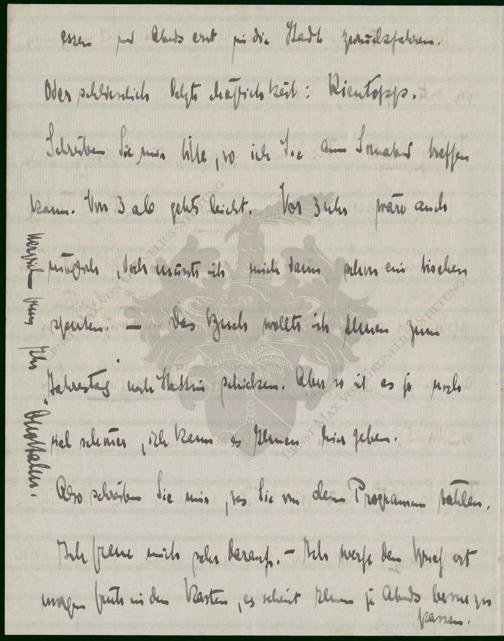 essen und Abends erst in die Stadt zurückfahren.
Oder schliesslich letzte Möglichkeit: Kientopp.
Schreiben Sie mir bitte, wo ich Sie am Sonnabend treffen
kann. Von 3 ab gehts leicht. Vor 3 Uhr wäre auch
möglich, doch müsste ich mich dann schon ein bischen
sputen. — Das Buch wollte ich Ihnen zum
"Jahrestag" nach schicken. Aber so ist es ja noch
viel schöner, ich kann es Ihnen hier geben.
Also schreiben Sie mir, was Sie von dem Programm halten.
Ich freue mich sehr darauf. — Ich werfe den Brief erst
morgen früh in den Kasten, es scheint Ihnen ja Abends besser zu
passen.
Herzlich Ihr